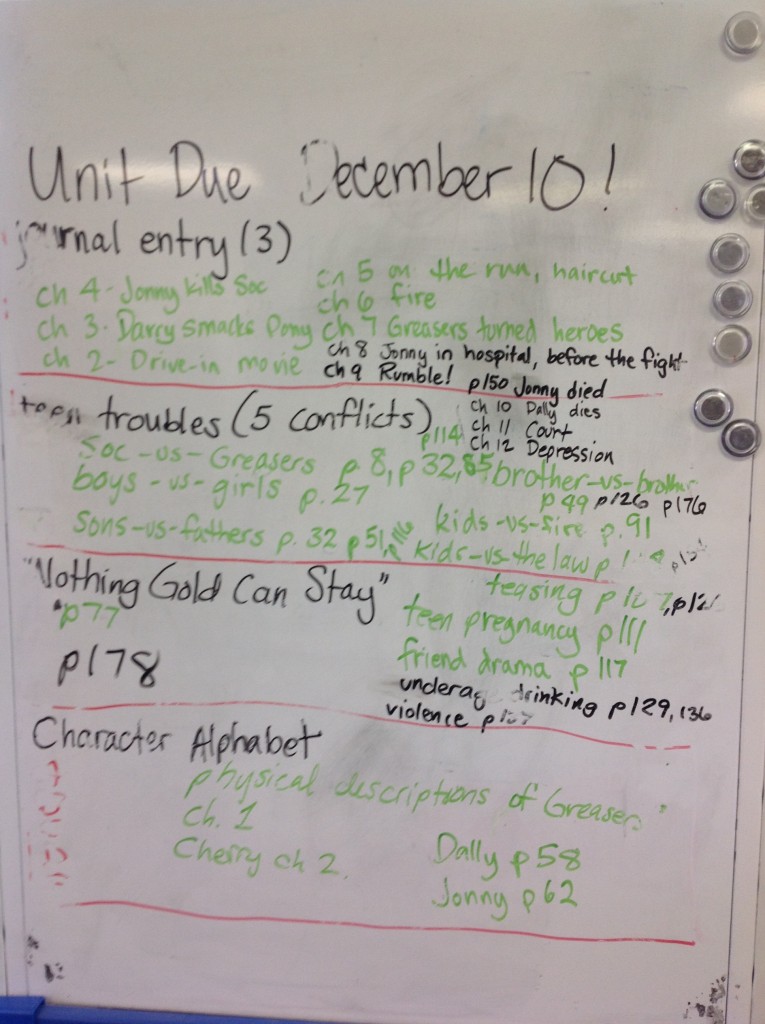 Unit Due December 10!
journal entry (3)
ch 4- Jonny kills Soc
ch 3- Darry smacks Pony
ch 2- Drive-in movie
ch 5 on the run, haircut
ch 6 fire
ch 7 Greasers turned heroes
ch 8 Jonny in hospital, before the fight
ch 9 Rumble! p150 Jonny died
ch 10 Dally dies
ch 11 Court
ch 12 Depression
troubles (5 conflicts)
p114
Soc-vs-Greasers p. 8, p 32, 85
boys-vs-girls p. 27
Sons-vs-fathers p. 32 p51,
brother-vs-brother
p 49 p126 p176
kids-vs-fire p. 91
kids-vs-the law p
teasing
teen pregnancy p111
friend drama p 117
underage drinking p129, 136
violence
"Nothing Gold Can Stay"
p77
p178
Character Alphabet
physical descriptions of Greasers
ch. 1
Cherry ch 2.
Dally p 58
Jonny p 62